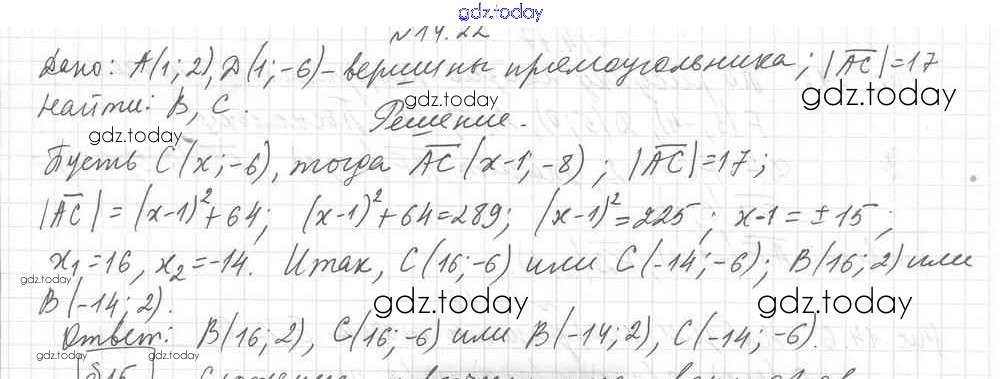 gdz.today
№14.22
Дано: A(1; 2), D(1; -6) - вершины прямоугольника; |AC| = 17
gdz.today
gdz.today
Найти: B, C.
Решение.
gdz.today
Пусть C(x; -6), тогда AC(x-1; -8); |AC| = 17;
|AC| = (x-1)² + 64; (x-1)² + 64 = 289; (x-1)² = 225; x-1 = ±15;
x₁ = 16, x₂ = -14. Итак, C(16; -6) или C(-14; -6); B(16; 2) или
gdz.today
B(-14; 2).
gdz.today
gdz.today
Ответ: B(16; 2), C(16; -6) или B(-14; 2), C(-14; -6).
gdz.today
§15